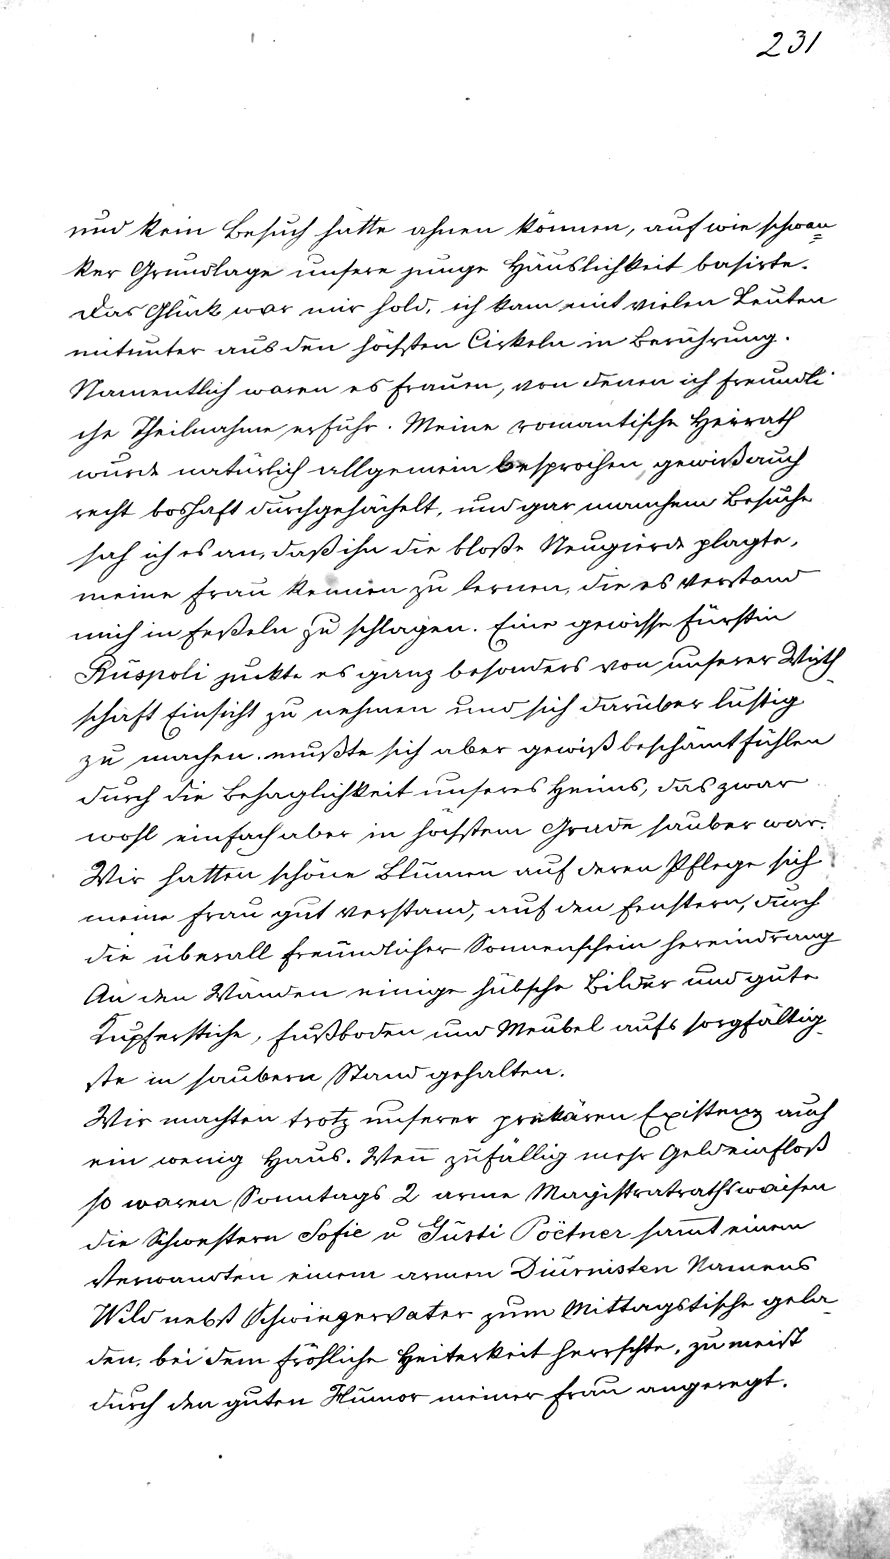 231
und kein Besuch hätte ahnen können, auf wie schwan=
ker Grundlage unsere junge Häuslichkeit basirte.
Das Glück war mir hold, ich kam mit vielen Leuten
mitunter aus den höchsten Cirkeln in Berührung.
Namentlich waren es Frauen, von denen ich freundli-
che Theilnahme erfuhr. Meine romantische Heirath
wurde natürlich allgemein besprochen gewiß auch
recht boshaft durchgehächelt, und gar manchem Besuche
sah ich es an, daß ihn die bloße Neugierde plagte,
meine Frau kennen zu lernen, die es verstand
mich in Feßeln zu schlagen. Eine gewisse Fürstin
Ruspoli juckte es ganz besonders von unserer Wirth-
schaft Einsicht zu nehmen und sich darüber lustig
zu machen. mußte sich aber gewiß beschämt fühlen
durch die Behaglichkeit unseres Heims, das zwar
wohl einfach aber in höchstem Grade sauber war.
Wir hatten schöne Blumen auf deren Pflege sich
meine Frau gut verstand, auf den Fenstern, durch
die überall freundlicher Sonnenschein hereindrang
An den Wänden einige hübsche Bilder und gute
Kupferstiche, Fußboden und Meubel aufs sorgfältig-
ste in saubern Stand gehalten.
Wir machten trotz unserer prekären Existenz auch
ein wenig Haus. Wenn̅ zufällig mehr Geld einfloß
so waren Sonntags 2 arme Magistratrathswaisen
die Schwestern Sofie u Gusti Poëtner sam̅t einem
Verwandten einem armen Diurnisten Namens
Wild nebst Schwiegervater zum Mittagstische gela-
den, bei dem fröhliche Heiterkeit herrschte, zumeist
durch den guten Humor meiner Frau angeregt.